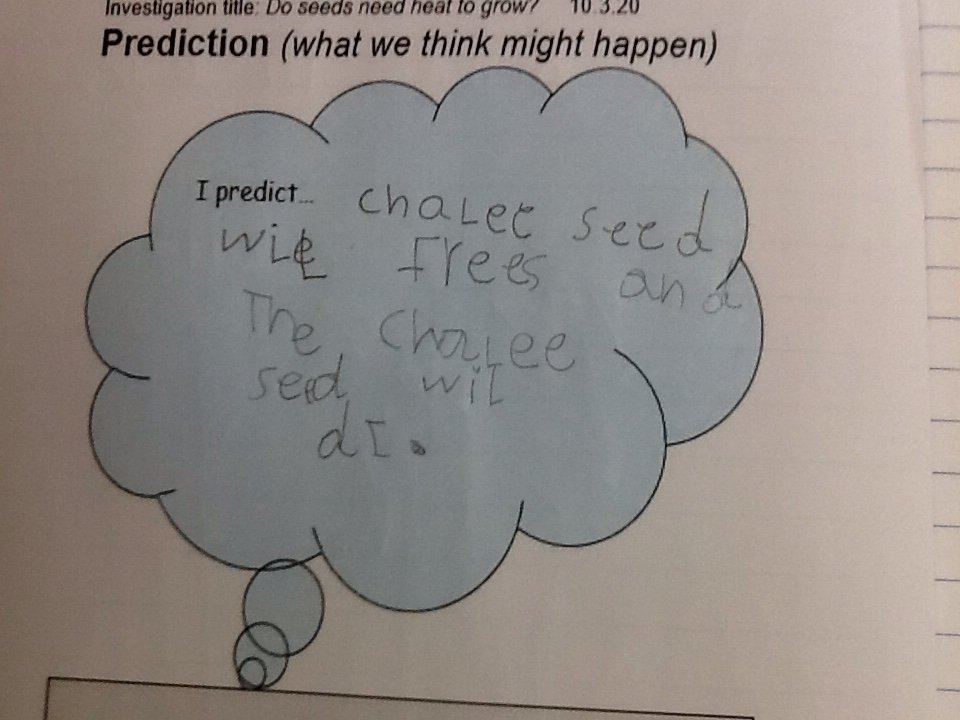 Investigation title: Do seeds need heat to grow? 10.3.20
Prediction (what we think might happen)
I predict... chalee seed
wil frees and
The chalee
seed wil
dI.